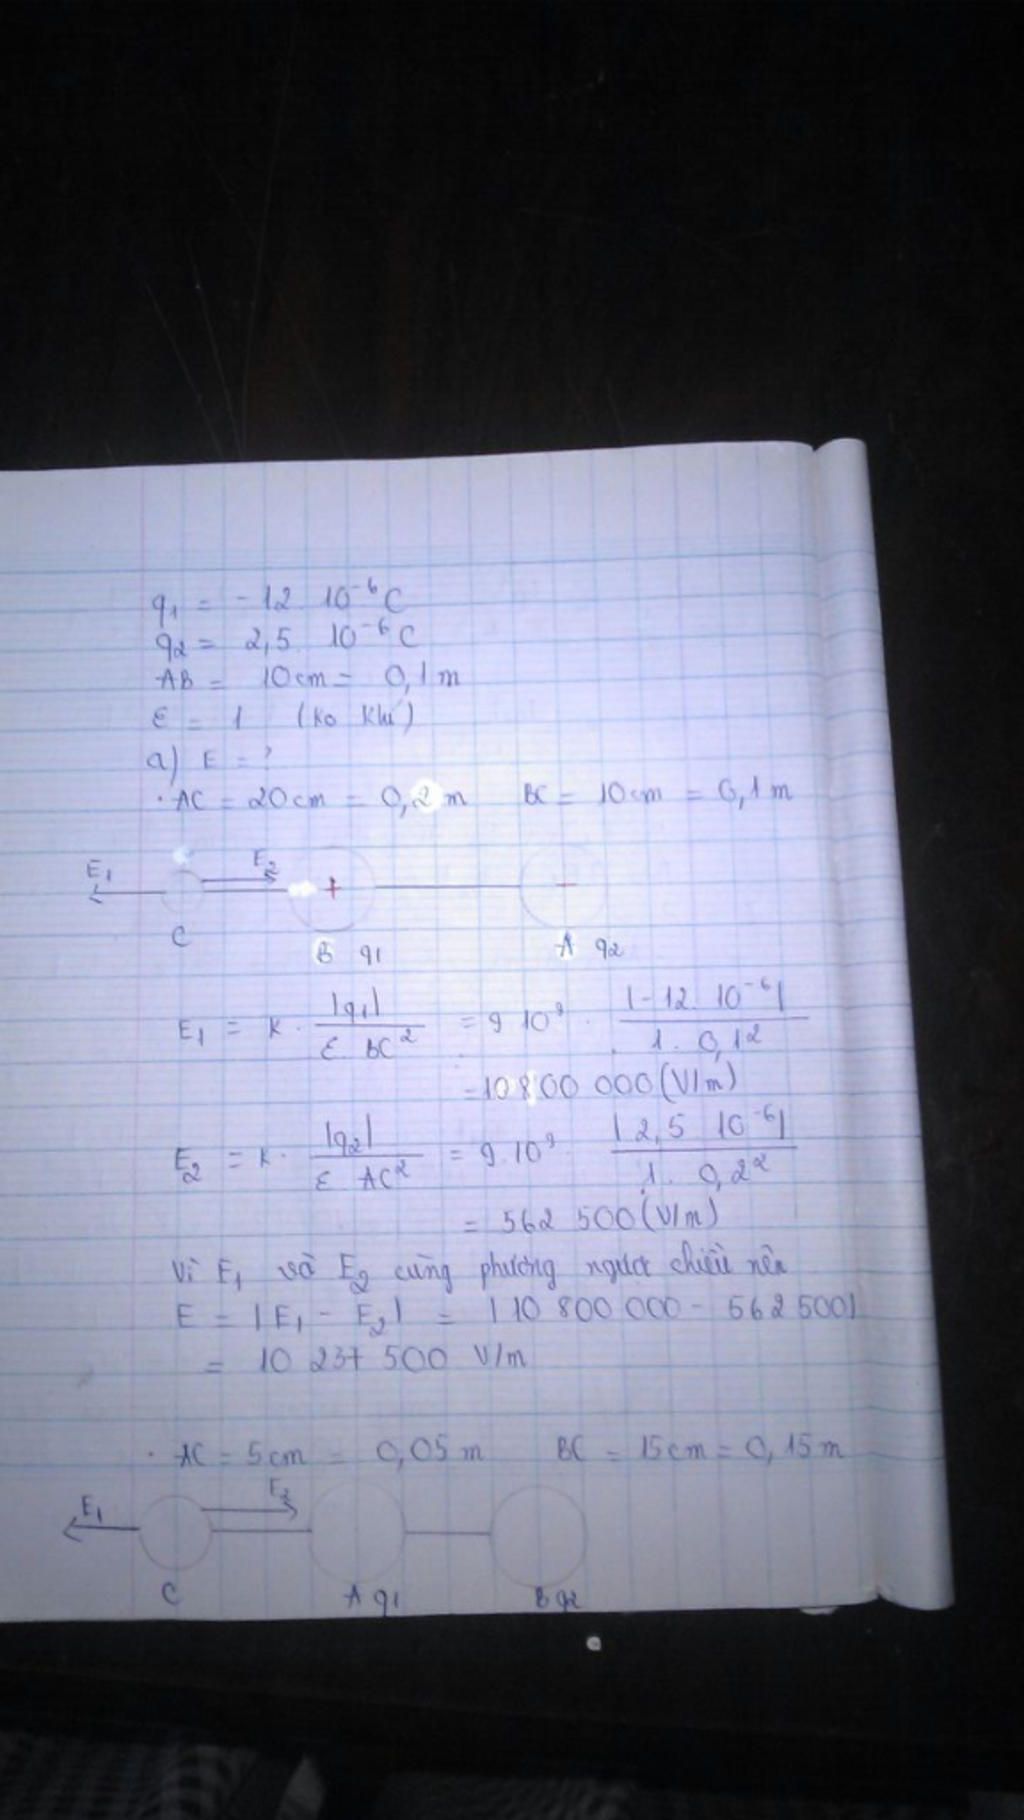 q₁ = -12. 10⁻⁶ C
q₂ = 2,5 10⁻⁶ C
AB = 10cm = 0,1m
ε = 1 (ko khí)
a) E = ?
· AC = 20cm = 0,2m BC = 10cm = 0,1m
E₁ E₂ + −
C B q₁ A q₂
E₁ = k. |q₁| / ε. BC² = 9 10⁹. |-12. 10⁻⁶| / 1. 0,1²
= 10800 000 (V/m)
E₂ = k. |q₂| / ε AC² = 9.10⁹ |2,5 10⁻⁶| / 1. 0,2²
= 562 500 (V/m)
Vì E₁ và E₂ cùng phương ngược chiều nên
E = |E₁ - E₂| = |10 800 000 - 562 500|
= 10 237 500 V/m
· AC = 5cm = 0,05m BC = 15cm = 0,15m
E₁ E₂
C A q₁ B q₂